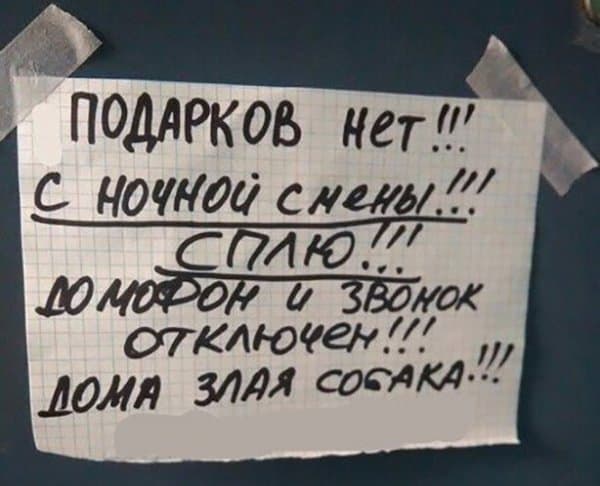 ПОДАРКОВ НЕТ!!!
С НОЧНОЙ СМЕНЫ!!!
СПЛЮ!!!
ДОМОФОН И ЗВОНОК
ОТКЛЮЧЕН!!!
ДОМА ЗЛАЯ СОБАКА!!!